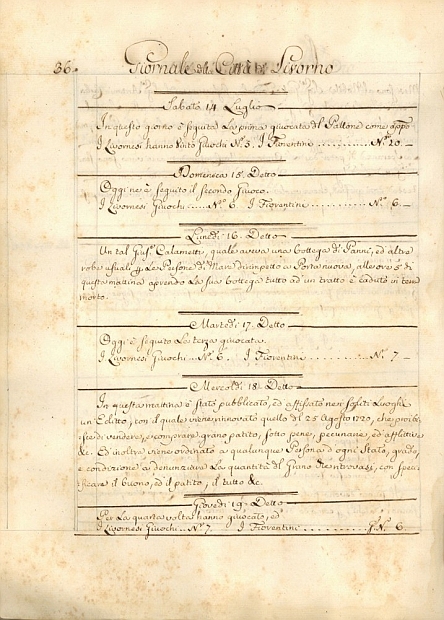 36.
Giornale della Città di Livorno
Sabato 14 Luglio
In questo giorno è seguita la prima giuocata del Pallone come app.o
I Livornesi hanno vinto Giuochi N.o 5. I Fiorentini .......... N.o 20.
Domenica 15. Detto
Oggi ne è seguito il secondo Giuoco.
I Livornesi Giuochi .... N.o 6. I Fiorentini .......... N.o 6.
Lunedì 16. Detto
Un tal Gius.e Calametti, quale aveva una bottega di Panni, ed altre
robe usuali p. le Persone di Mare dirimpetto a Porta nuova, alle ore 5 di
questa mattina aprendo la sua bottega tutto ad un tratto è caduto in terra
morto.
Martedì 17. Detto
Oggi è seguita la terza giuocata.
I Livornesi Giuochi N.o 6. I Fiorentini .......... N.o 7
Mercoldì 18. Detto
In questa mattina è stato pubblicato, ed affissato nei soliti Luoghi
un Editto, con il quale viene rinnovato quello del 25 Agosto 1720, che proibi=
sce di vendere, e comprare grano patito, sotto pene, pecuniarie, ed afflittive
&c. Ed inoltre viene ordinato a qualunque Persona d'ogni stato, grado,
e condizione a denunziare la quantità del Grano che ritrovasi, con speci=
ficare il buono, ed il patito, il tutto &c.
Giovedì 19. Detto
Per la quarta volta hanno giuocato, ed
I Livornesi Giuochi N.o 7 I Fiorentini .......... N.o 6.